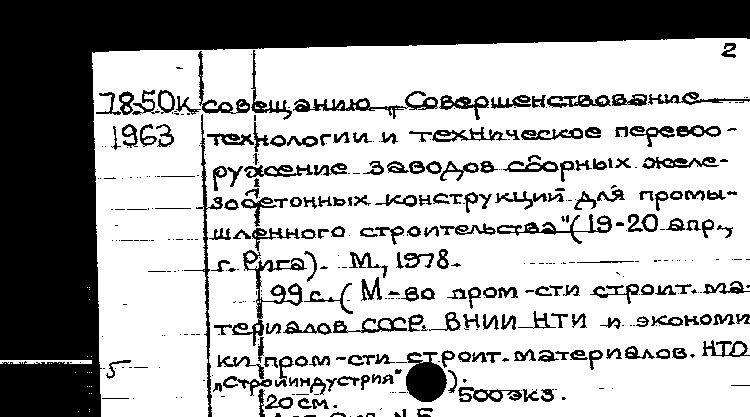 2
78-50к совещанию „Совершенствование
1963 технологии и техническое перевоо-
ружение заводов сборных желе-
зобетонных конструкций для промы-
шленного строительства" (19-20 апр.,
г. Рига). М., 1978.
99 с. (М-во пром-сти строит. ма-
териалов СССР. ВНИИ НТИ и экономи
ки пром-сти строит. материалов. НТО
5 „Стройиндустрия" ).
20 см. 500 экз.